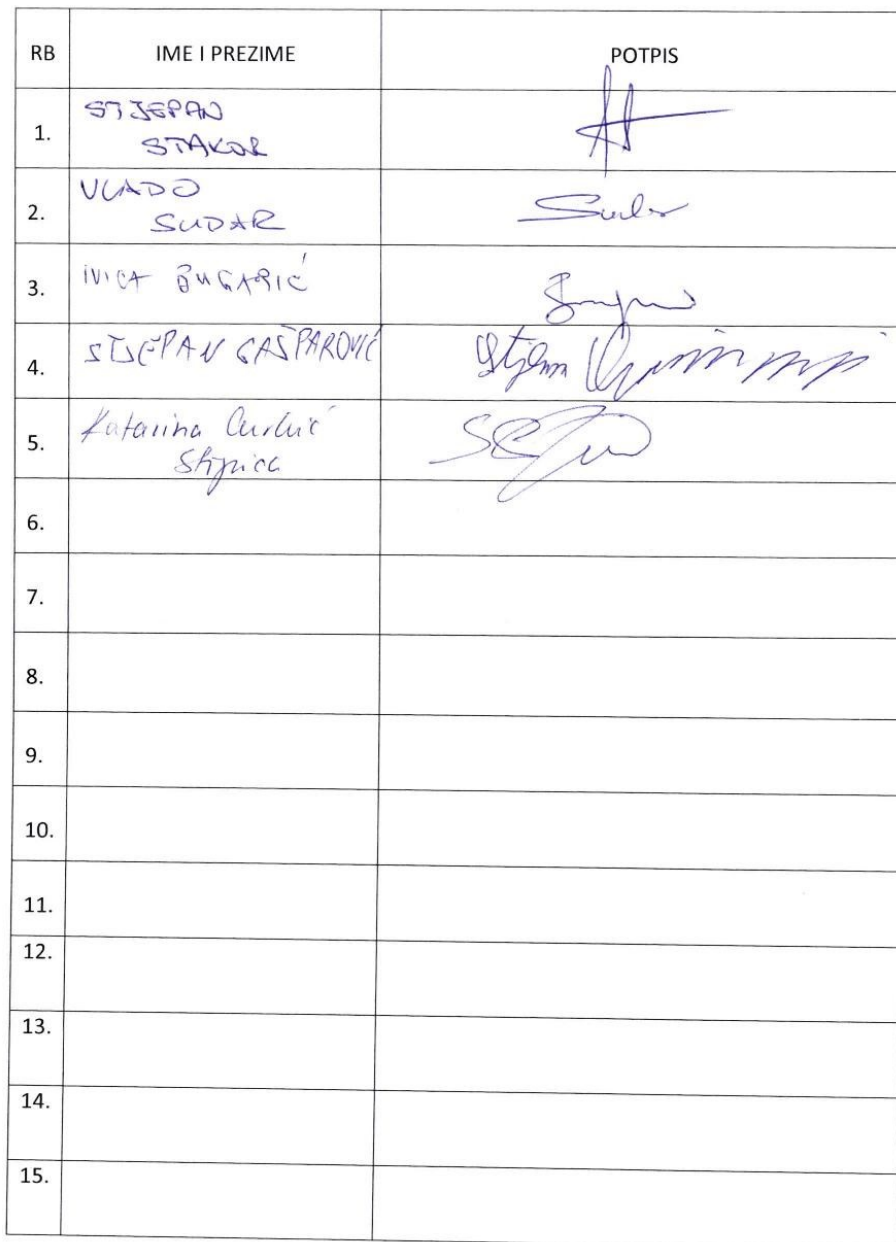 RB IME I PREZIME POTPIS
1. STJEPAN
STAKOR
2. VLADO
SUDAR
3. IVICA BUGARIĆ
4. STJEPAN GAŠPAROVIĆ
5. Katarina
6.
7.
8.
9.
10.
11.
12.
13.
14.
15.